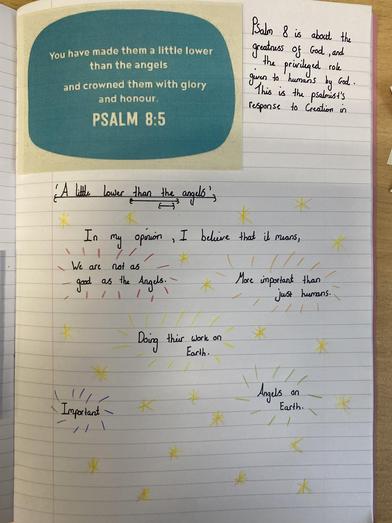 You have made them a little lower
than the angels
and crowned them with glory
and honour.
PSALM 8:5
Psalm 8 is about the
greatness of God, and
the privileged role
given to humans by God.
This is the psalmist's
response to Creation in
'A little lower than the angels'
In my opinion, I believe that it means,
We are not as
good as the Angels.
More important than
just humans.
Doing their work on
Earth.
Important
Angels on
Earth.